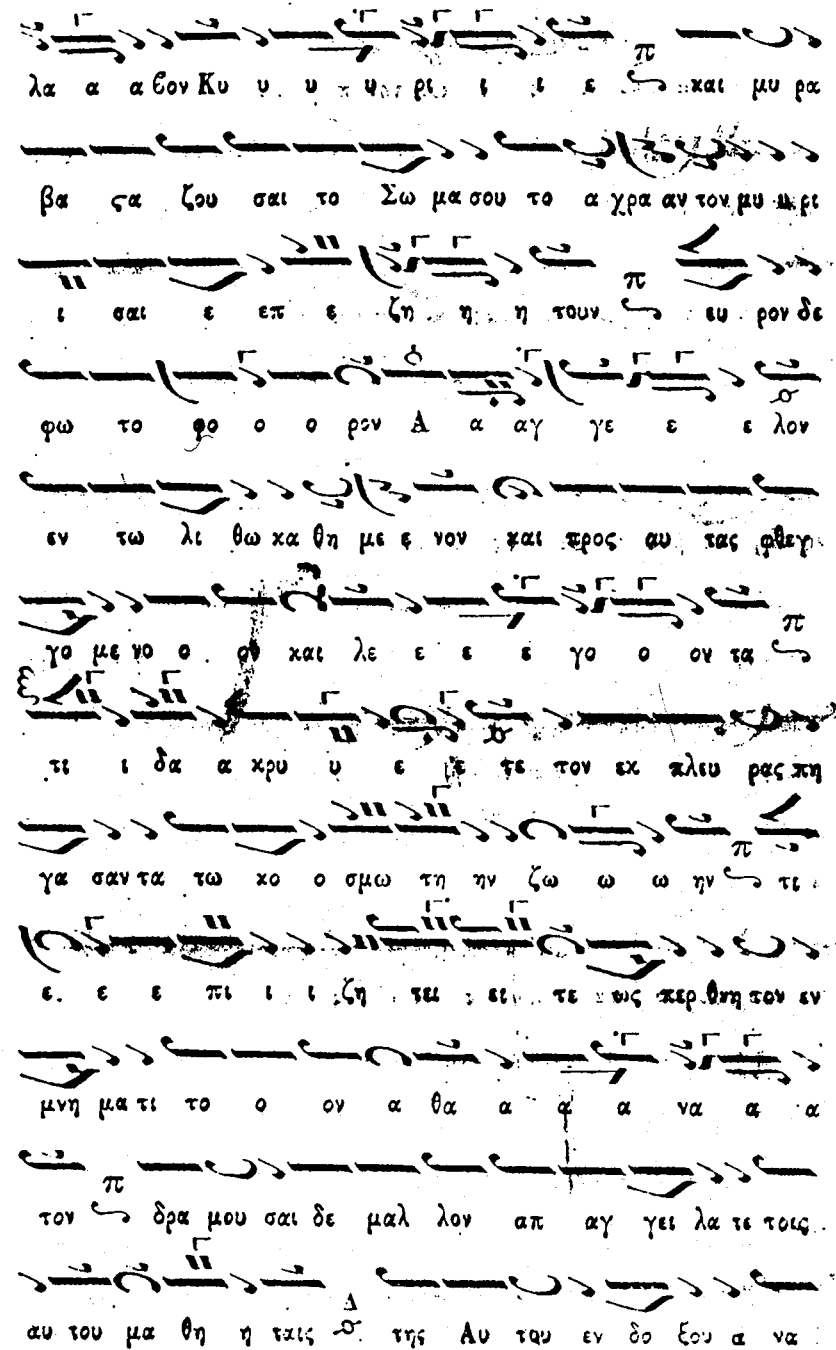 λα α α ϐον Κυ υ υ υ υ ρι ι ι ε και μυ ρα
βα ϛα ζου σαι το Σω μα σου το α χρα αν τον μυ υ ρι
ι σαι ε επ ε ζη η η τουν ευ ρον δε
φω το φο ο ο ρον Α α αγ γε ε ε λον
εν τω λι θω κα θη με ε νον και προς αυ τας φθεγ
γο με νο ο ον και λε ε ε ε γο ο ον τα
τι ι δα α κρυ υ ε ε τε τον εκ πλευ ρας πη
γα σαν τα τω κο ο σμω τη ην ζω ω ω ην τι
ε ε ε πι ι ι ζη τει ει τε ως περ θνη τον εν
μνη μα τι το ο ον α θα α α α να α α
τον δρα μου σαι δε μαλ λον απ αγ γει λα τε τοις
αυ του μα θη η ταις της Αυ του εν δο ξου α να